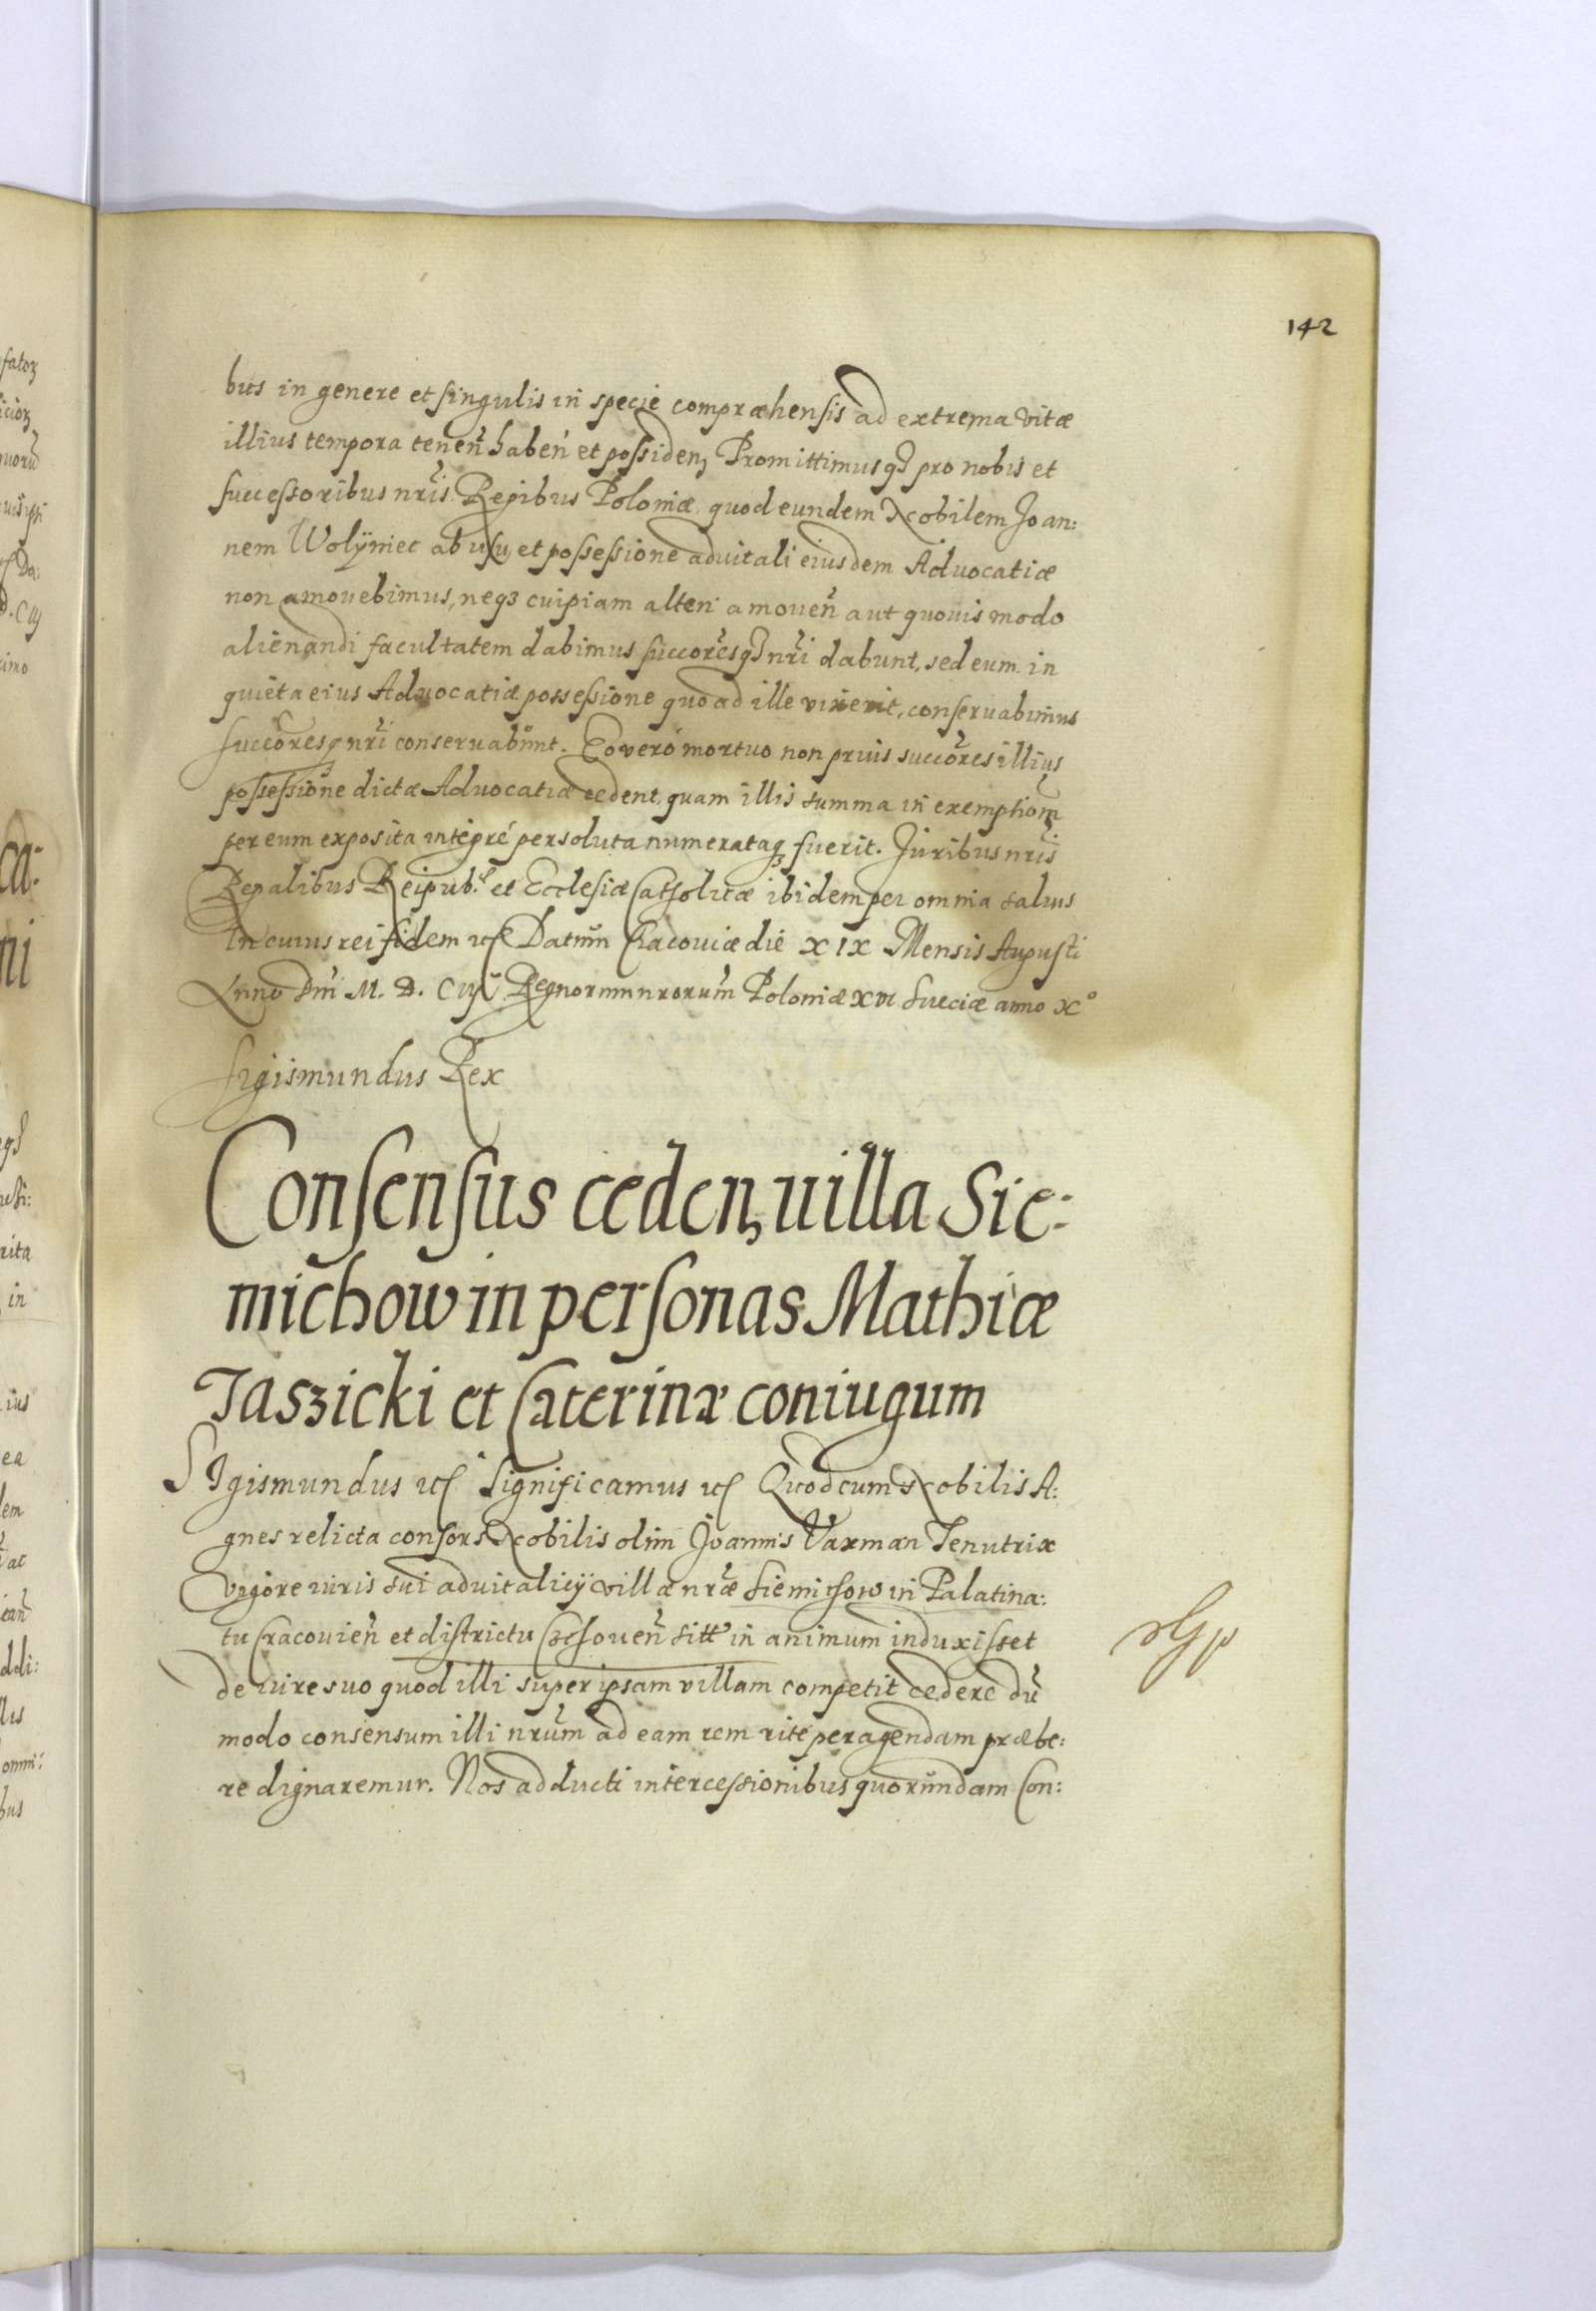 142
bus in genere et singulis in specie compræhensis ad extrema vitæ
illius tempora tenen̄ haben̄ et possiden, Promittimusq₃ pro nobis et
successoribus nr̃is Regibus Poloniæ quod eundem Nobilem Joan:
nem Wolÿniec ab usu et possessione aduitali eiusdem Aduocatiæ
non amouebimus, neq₃ cuipiam alteri amouen̄ aut quouis modo
alienandi facultatem dabimus succoresq₃ nr̃i dabunt, sed eum in
quieta eius Aduocatiæ possessione quoad ille vixerit, conseruabimus
succoresq₃ nr̃i conseruabunt. Eo vero mortuo non prius succores illius
possessione dictæ Aduocatiæ cedent, quam illis summa in exemptiom̃
per eum exposita integrè persoluta numerataq₃ fuerit. Juribus nr̃is
Regalibus Reipub. et Ecclesiæ Catholicæ ibidem per omnia saluis
In cuius rei fidem etc Datum Cracouiæ die XIX Mensis Augusti
Anno Dni M. D. Ciij Regnorum nrorum Poloniæ XVI Sueciæ anno X°
Sigismundus Rex
Consensus ceden, uilla Sie:
michow in personas Mathiæ
Jaszicki et Caterinæ coniugum
SIgismundus etc Significamus etc Quod cum Nobilis A:
gnes relicta consors Nobilis olim Joannis Varman Tenutrix
vigore iuris sui aduitalicij villæ nr̃æ Siemichow in Palatina:
tu Cracouien̄ et districtu Czchouen̄ sitt' in animum induxisset
de iure suo quod illi super ipsam villam competit cedere dū
modo consensum illi nrūm ad eam rem ritè peragendam præbe:
re dignaremur. Nos adducti intercessionibus quorundam Con: